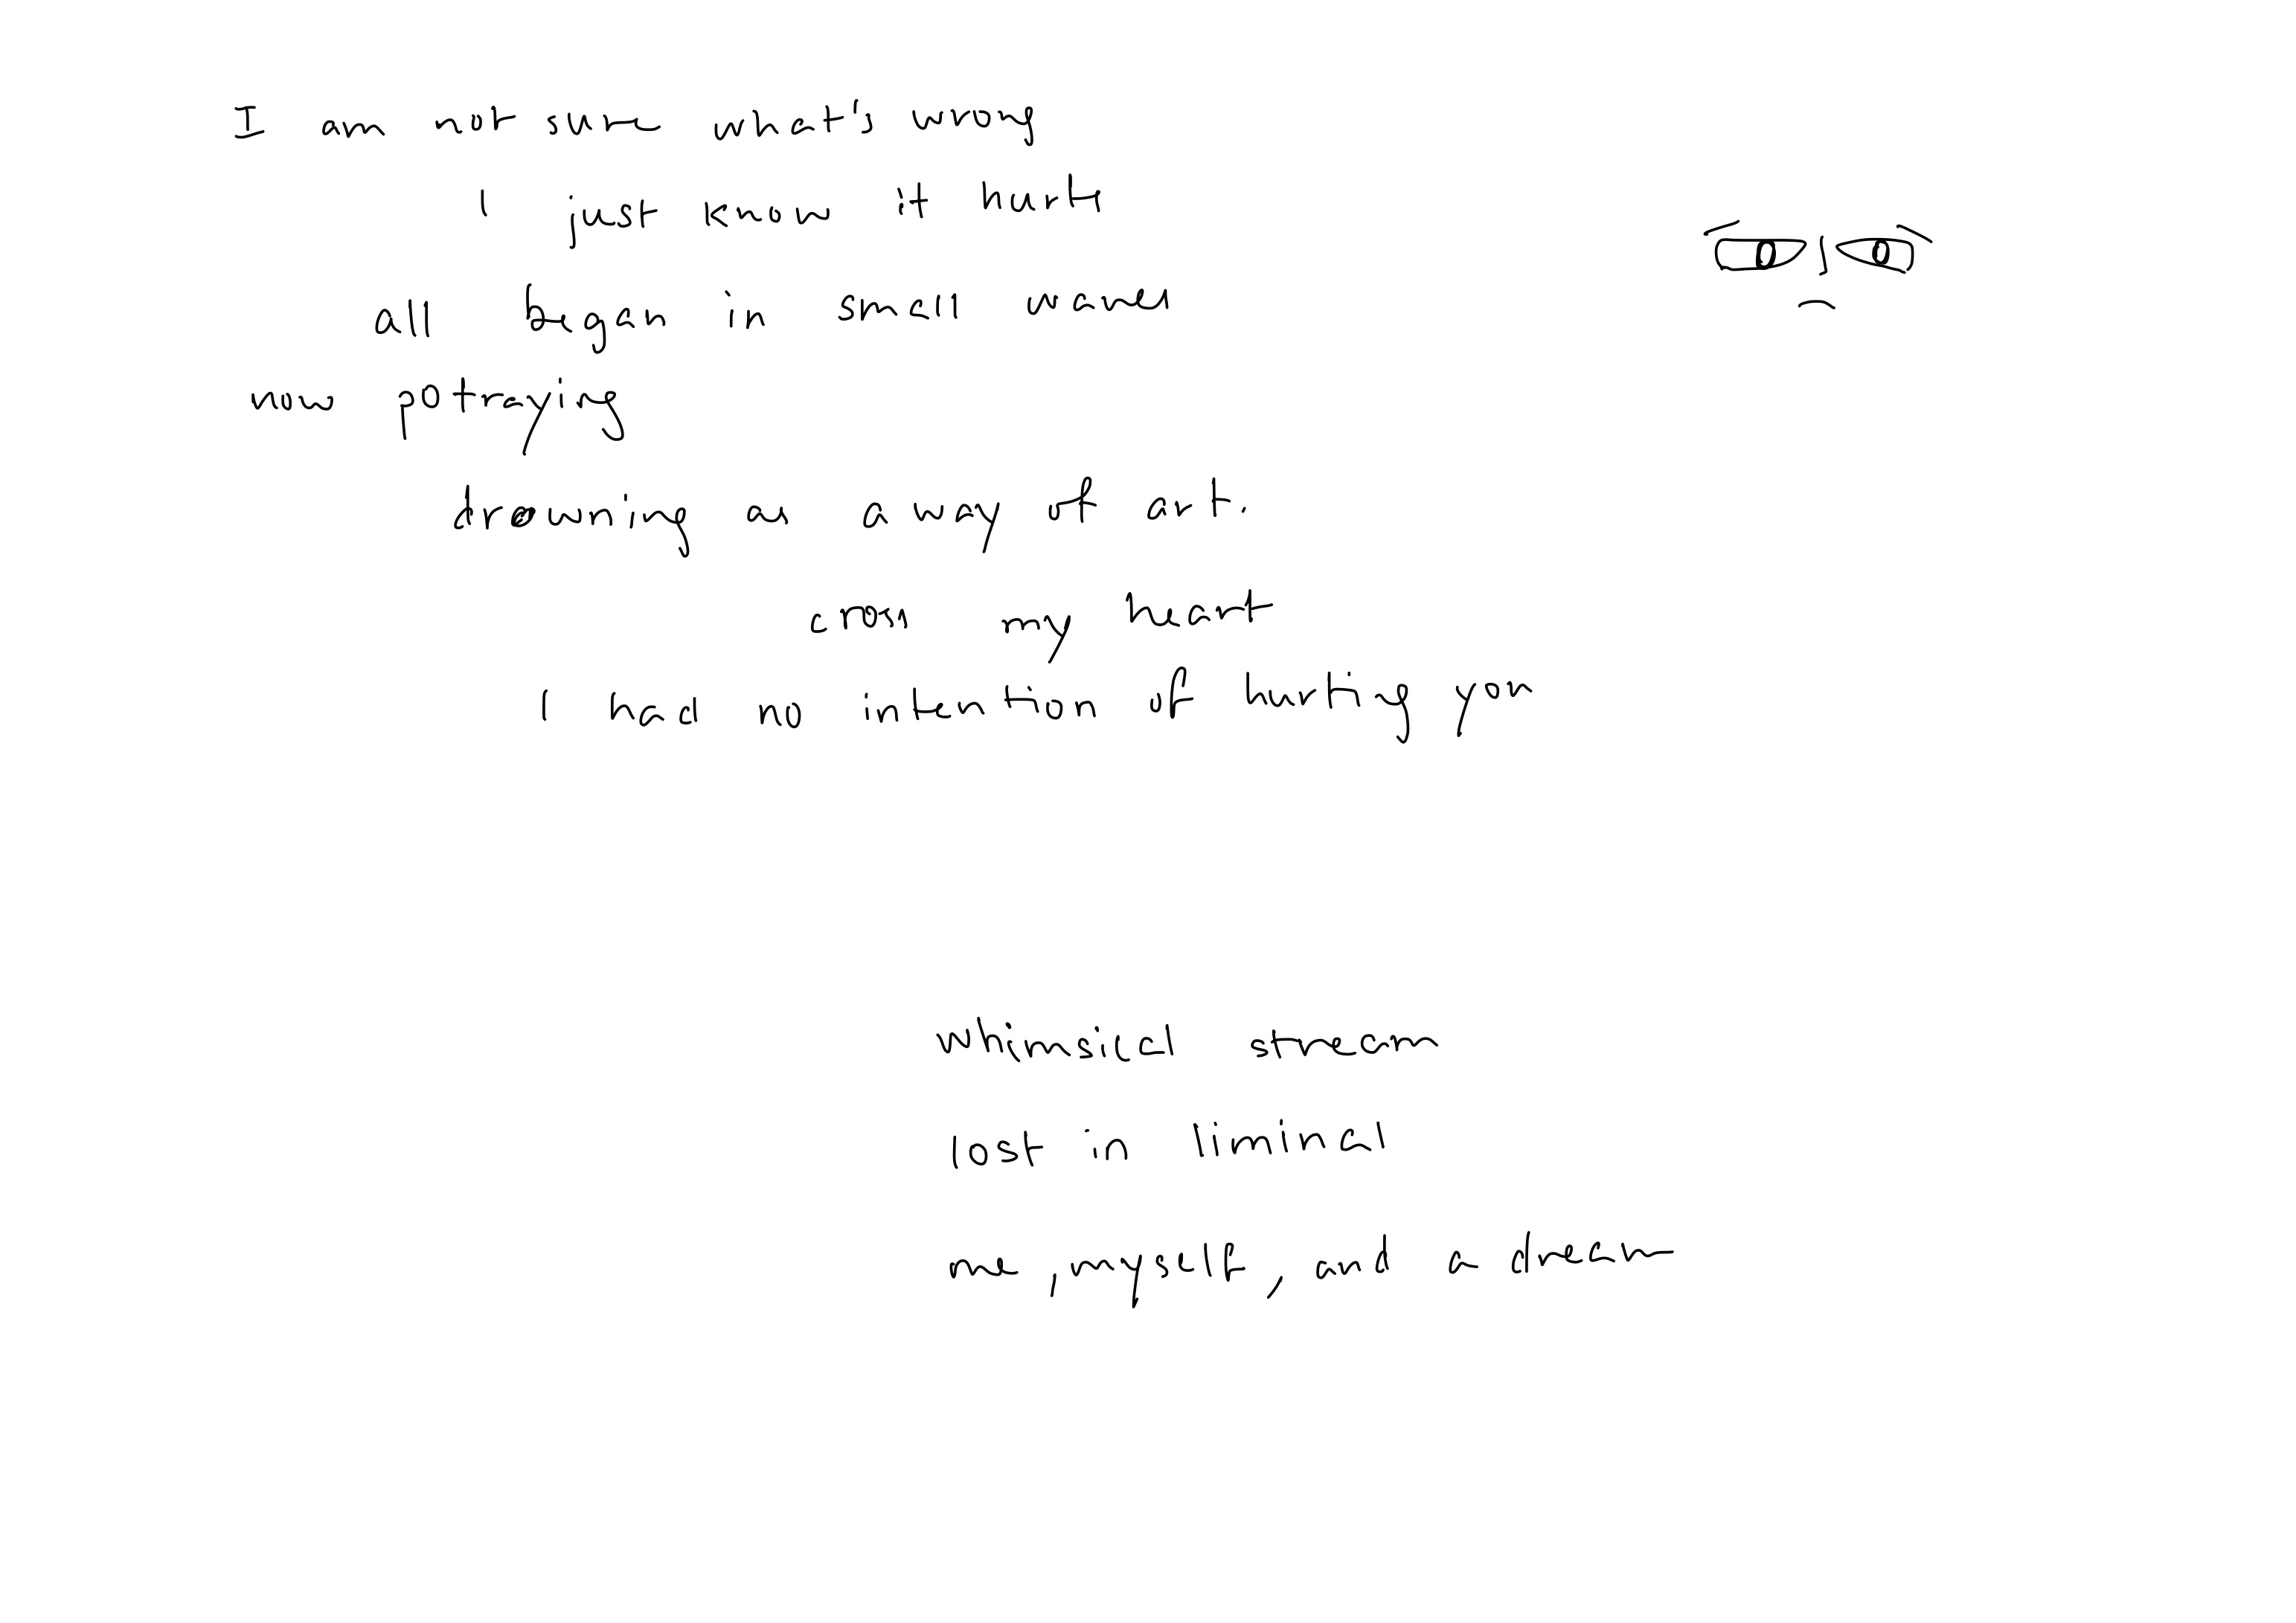 I am not sure what's wrong
I just know it hurts
all began in small waves
now potraying
drowning as a way of art.
cross my heart
I had no intention of hurting you
whimsical stream
lost in liminal
me, myself, and a dream